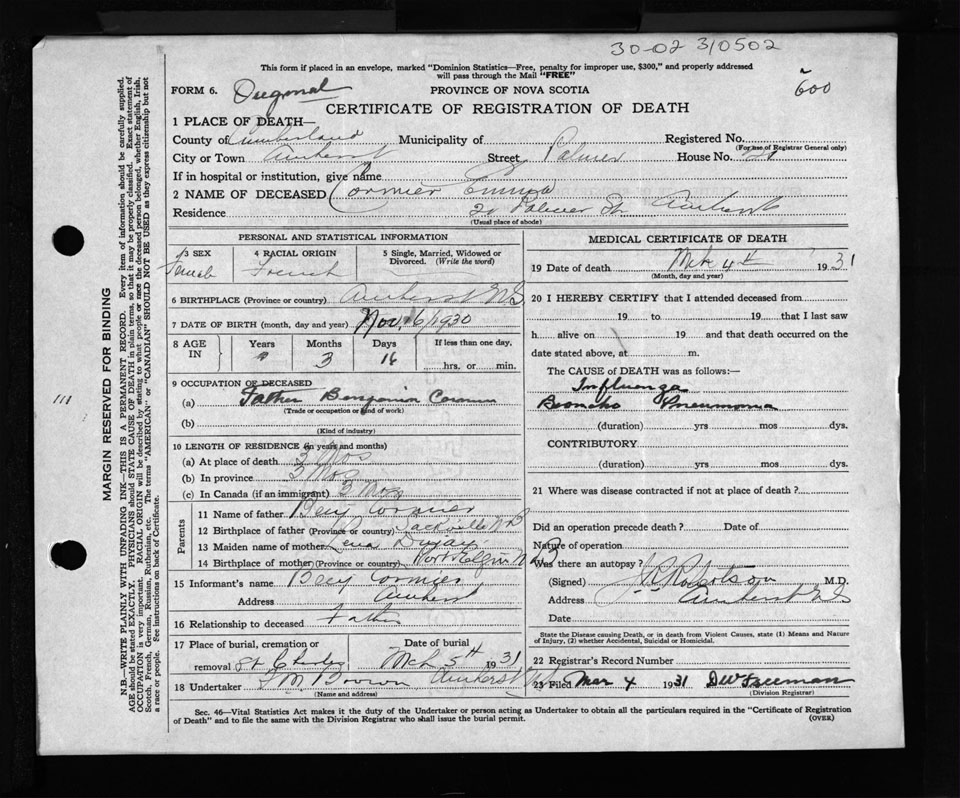 30-02 310502
This form if placed in an envelope, marked "Dominion Statistics—Free, penalty for improper use, $300," and properly addressed
will pass through the Mail "FREE"
FORM 6.
PROVINCE OF NOVA SCOTIA
600
CERTIFICATE OF REGISTRATION OF DEATH
1 PLACE OF DEATH—
County of Cumberland Municipality of Registered No.
(For use of Registrar General only)
City or Town Amherst Street Palmer House No. 20
If in hospital or institution, give name
2 NAME OF DECEASED Cormier Emma
Residence 20 Palmer St Amherst
(Usual place of abode)
PERSONAL AND STATISTICAL INFORMATION
3 SEX Female
4 RACIAL ORIGIN French
5 Single, Married, Widowed or Divorced. (Write the word)
6 BIRTHPLACE (Province or country) Amherst N.S.
7 DATE OF BIRTH (month, day and year) Nov. 16/1930
8 AGE IN Years Months Days If less than one day,
3 16 hrs. or min.
9 OCCUPATION OF DECEASED
(a) Father Benjamin Cormier
(Trade or occupation or kind of work)
(b)
(Kind of industry)
10 LENGTH OF RESIDENCE (in years and months)
(a) At place of death 3 Mos
(b) In province 3 Mos
(c) In Canada (if an immigrant) 3 Mos
Parents
11 Name of father Benj Cormier
12 Birthplace of father (Province or country) Sackville N B
13 Maiden name of mother Lena
14 Birthplace of mother (Province or country) Port Elgin N B
15 Informant's name Benj Cormier
Address Amherst
16 Relationship to deceased Father
17 Place of burial, cremation or removal St Charles
Date of burial Mch 5th 1931
18 Undertaker Brown Amherst
(Name and address)
MEDICAL CERTIFICATE OF DEATH
19 Date of death Mch 4th 1931
(Month, day and year)
20 I HEREBY CERTIFY that I attended deceased from
19 to 19 that I last saw
h alive on 19 and that death occurred on the
date stated above, at m.
The CAUSE of DEATH was as follows:—
Influenza
Broncho Pneumonia
(duration) yrs mos dys.
CONTRIBUTORY
(duration) yrs mos dys.
21 Where was disease contracted if not at place of death?
Did an operation precede death? Date of
Nature of operation
Was there an autopsy?
(Signed) Robertson M.D.
Address Amherst N S
Date
State the Disease causing Death, or in death from Violent Causes, state (1) Means and Nature
of Injury, (2) whether Accidental, Suicidal or Homicidal.
22 Registrar's Record Number
23 Filed Mar 4 1931 Freeman
(Division Registrar)
Sec. 46—Vital Statistics Act makes it the duty of the Undertaker or person acting as Undertaker to obtain all the particulars required in the "Certificate of Registration
of Death" and to file the same with the Division Registrar who shall issue the burial permit.
(OVER)
111
MARGIN RESERVED FOR BINDING
N.B.—WRITE PLAINLY WITH UNFADING INK—THIS IS A PERMANENT RECORD. Every item of information should be carefully supplied.
AGE should be stated EXACTLY. PHYSICIANS should STATE CAUSE OF DEATH in plain terms, so that it may be properly classified. Exact statement of
OCCUPATION is very important. RACIAL ORIGIN will be described by stating to what people or race the deceased person belonged, whether English, Irish,
Scotch, French, German, Russian, Ruthenian, etc. The terms "AMERICAN" or "CANADIAN" SHOULD NOT BE USED as they express citizenship but not
a race or people. See instructions on back of Certificate.